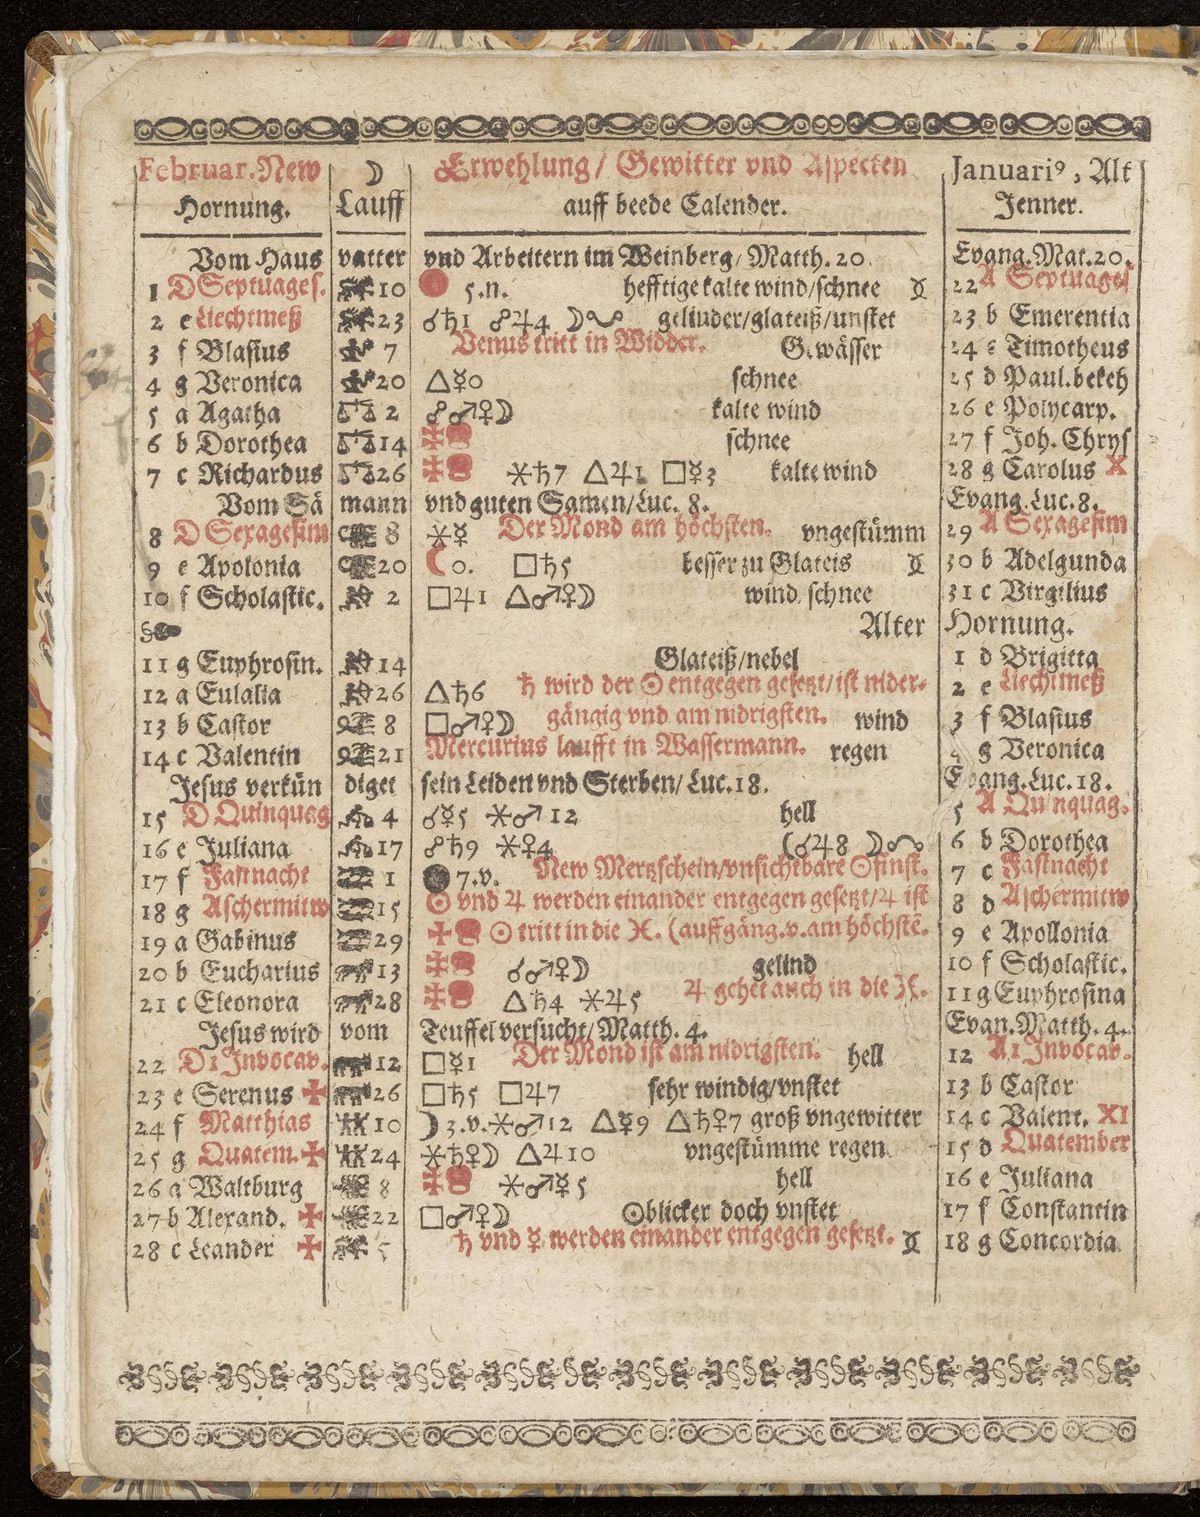 Februar. New ☽ Erwehlung / Gewitter vnd Aspecten Januariꝰ, Alt
Hornung. Lauff auff beede Calender. Jenner.
Vom Haus vatter vnd Arbeitern im Weinberg / Matth. 20. Evang. Mat. 20.
1 D Septuages. 10 5. n. hefftige kalte wind / schnee 22 A Septuages
2 e Liechtmeß 23 ☌♄1 ☍♃4 ☽☋ gelinder / glateiß / vnstet 23 b Emerentia
3 f Blasius 7 Venus tritt in Widder. Gewässer 24 c Timotheus
4 g Veronica 20 △☿0 schnee 25 d Paul. bekeh
5 a Agatha 2 ☍♂♀☽ kalte wind 26 e Polycarp.
6 b Dorothea 14 ✠ schnee 27 f Joh. Chrys
7 c Richardus 26 ✠ ⚹♄7 △♃1 □☿3 kalte wind 28 g Carolus X
Vom Sä mann vnd guten Samen / Luc. 8. Evang. Luc. 8.
8 D Sexagesim 8 ⚹☿ Der Mond am höchsten. vngestümm 29 A Sexagesim
9 e Apolonia 20 ☾0. □♄5 besser zu Glateis 30 b Adelgunda
10 f Scholastic. 2 □♃1 △♂♀☽ wind schnee 31 c Virgilius
☞ Alter Hornung.
11 g Euphrosin. 14 Glateiß / nebel 1 d Brigitta
12 a Eulalia 26 △♄6 ♄ wird der ☉ entgegen gesetzt / ist nider- 2 e Liechtmeß
13 b Castor 8 □♂♀☽ gängig vnd am nidrigsten. wind 3 f Blasius
14 c Valentin 21 Mercurius laufft in Wassermann. regen 4 g Veronica
Jesus verkün diget sein Leiden vnd Sterben / Luc. 18. Evang. Luc. 18.
15 D Quinquag 4 ☌☿5 ⚹♂12 hell 5 A Quinquag.
16 e Juliana 17 ☍♄9 ⚹♀4 (☌♃8 ☽☊ 6 b Dorothea
17 f Fastnacht 1 ● 7. v. New Mertzschein / vnsichtbare ☉finst. 7 c Fastnacht
18 g Aschermitw 15 ☉ vnd ♃ werden einander entgegen gesetzt / ♃ ist 8 d Aschermitw
19 a Gabinus 29 ✠ ☉ tritt in die ♓. (auffgäng. v. am höchstē. 9 e Apollonia
20 b Eucharius 13 ✠ ☌♂♀☽ gelind 10 f Scholastic.
21 c Eleonora 28 ✠ △♄4 ⚹♃5 ♃ gehet auch in die ♓. 11 g Euphrosina
Jesus wird vom Teuffel versucht / Matth. 4. Evan. Matth. 4.
22 D1 Invocav. 12 □☿1 Der Mond ist am nidrigsten. hell 12 A1 Invocav.
23 e Serenus ✠ 26 □♄5 □♃7 sehr windig / vnstet 13 b Castor
24 f Matthias 10 ☽ 3. v. ⚹♂12 △☿9 △♄♀7 groß vngewitter 14 c Valent. XI
25 g Quatem. ✠ 24 ⚹♄♀☽ △♃10 vngestümme regen 15 d Quatember
26 a Waltburg 8 ✠ ⚹♂☿5 hell 16 e Juliana
27 b Alexand. ✠ 22 □♂♀☽ ☉blicker doch vnstet 17 f Constantin
28 c Leander ✠ 5 ♄ vnd ☿ werden einander entgegen gesetzt. 18 g Concordia